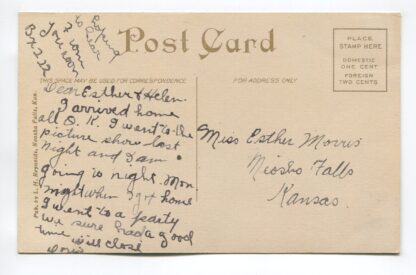 Post Card
THIS SPACE MAY BE USED FOR CORRESPONDENCE
FOR ADDRESS ONLY
PLACE
STAMP HERE
DOMESTIC
ONE CENT
FOREIGN
TWO CENTS
Pub. by L. H. Reynolds, Neosho Falls, Kan.
Hoping
to hear
from
you soon
Bx 222
Dear Esther & Helen.
I arrived home
all O.K. I went to the
picture show last
night and I am
going to night. Mon
night when I got home
I went to a party
we sure had a good
time will close
Doris
Miss Esther Morris
Niosho Falls
Kansas.